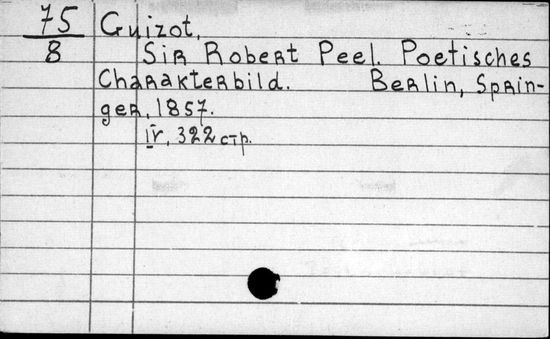 75 Guizot.
8 Sir Robert Peel. Poetisches
Charakterbild. Berlin, Sprin-
ger, 1857.
IV, 322 стр.